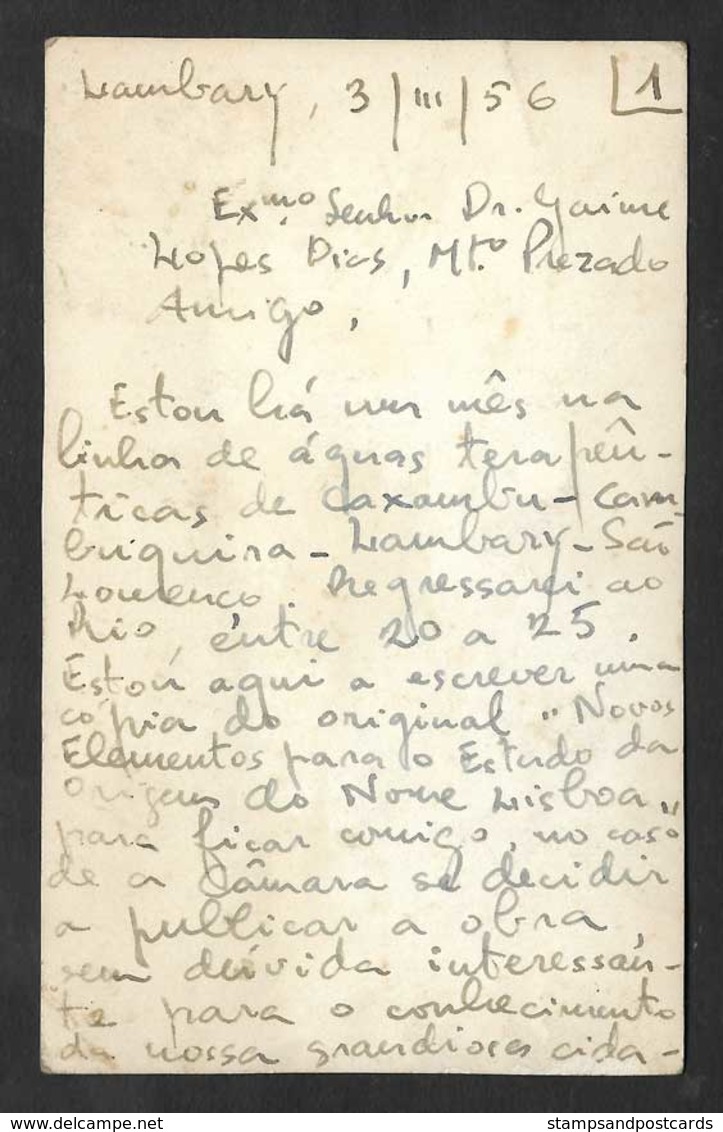 Lambary, 3/III/56 1
Exmo. Senhor Dr. Jaime
Lopes Dias, Mto. Prezado
Amigo,
Estou há um mês na
linha de águas terapêu-
ticas de Caxambu-Cam-
buquira-Lambary-São
Lourenço. Regressarei ao
Rio, entre 20 a 25.
Estou aqui a escrever uma
cópia do original "Novos
Elementos para o Estudo da
Origem do Nome Lisboa"
para ficar comigo, no caso
de a Câmara se decidir
a publicar a obra,
sem dúvida interessan-
te para o conhecimento
da nossa grandiosa cida-
stampsandpostcards